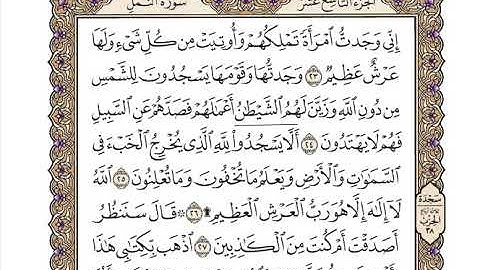 الجزء التاسع عشر سورة النمل
إِنِّي وَجَدتُّ ٱمْرَأَةً تَمْلِكُهُمْ وَأُوتِيَتْ مِن كُلِّ شَىْءٍ وَلَهَا
عَرْشٌ عَظِيمٌ ٢٣ وَجَدتُّهَا وَقَوْمَهَا يَسْجُدُونَ لِلشَّمْسِ
مِن دُونِ ٱللَّهِ وَزَيَّنَ لَهُمُ ٱلشَّيْطَٰنُ أَعْمَٰلَهُمْ فَصَدَّهُمْ عَنِ ٱلسَّبِيلِ
فَهُمْ لَا يَهْتَدُونَ ٢٤ أَلَّا يَسْجُدُوا۟ لِلَّهِ ٱلَّذِى يُخْرِجُ ٱلْخَبْءَ فِى
ٱلسَّمَٰوَٰتِ وَٱلْأَرْضِ وَيَعْلَمُ مَا تُخْفُونَ وَمَا تُعْلِنُونَ ٢٥ ٱللَّهُ
لَآ إِلَٰهَ إِلَّا هُوَ رَبُّ ٱلْعَرْشِ ٱلْعَظِيمِ ۩ ٢٦ ۞ قَالَ سَنَنظُرُ
أَصَدَقْتَ أَمْ كُنتَ مِنَ ٱلْكَٰذِبِينَ ٢٧ ٱذْهَب بِّكِتَٰبِى هَٰذَا
سجدة
الحزب
٣٨